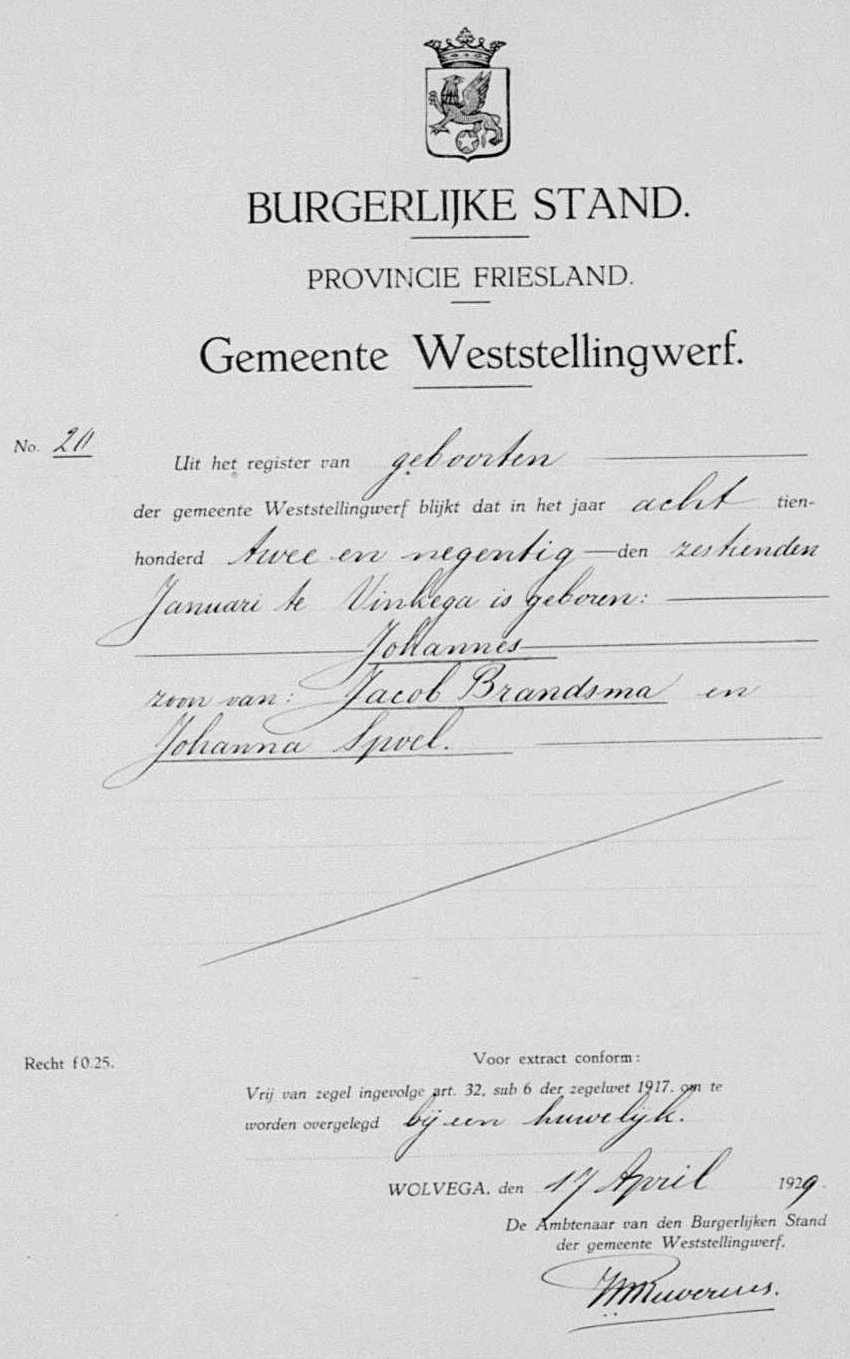 BURGERLIJKE STAND.
PROVINCIE FRIESLAND.
Gemeente Weststellingwerf.
No. 20
Uit het register van geboorten
der gemeente Weststellingwerf blijkt dat in het jaar acht tien-
honderd twee en negentig den zestienden
Januari te Vinkega is geboren:
Johannes
zoon van: Jacob Brandsma en
Johanna Spoel.
Recht f 0.25.
Voor extract conform:
Vrij van zegel ingevolge art. 32, sub 6 der zegelwet 1917, om te
worden overgelegd bij een huwelijk.
WOLVEGA, den 17 April 1929.
De Ambtenaar van den Burgerlijken Stand
der gemeente Weststellingwerf.